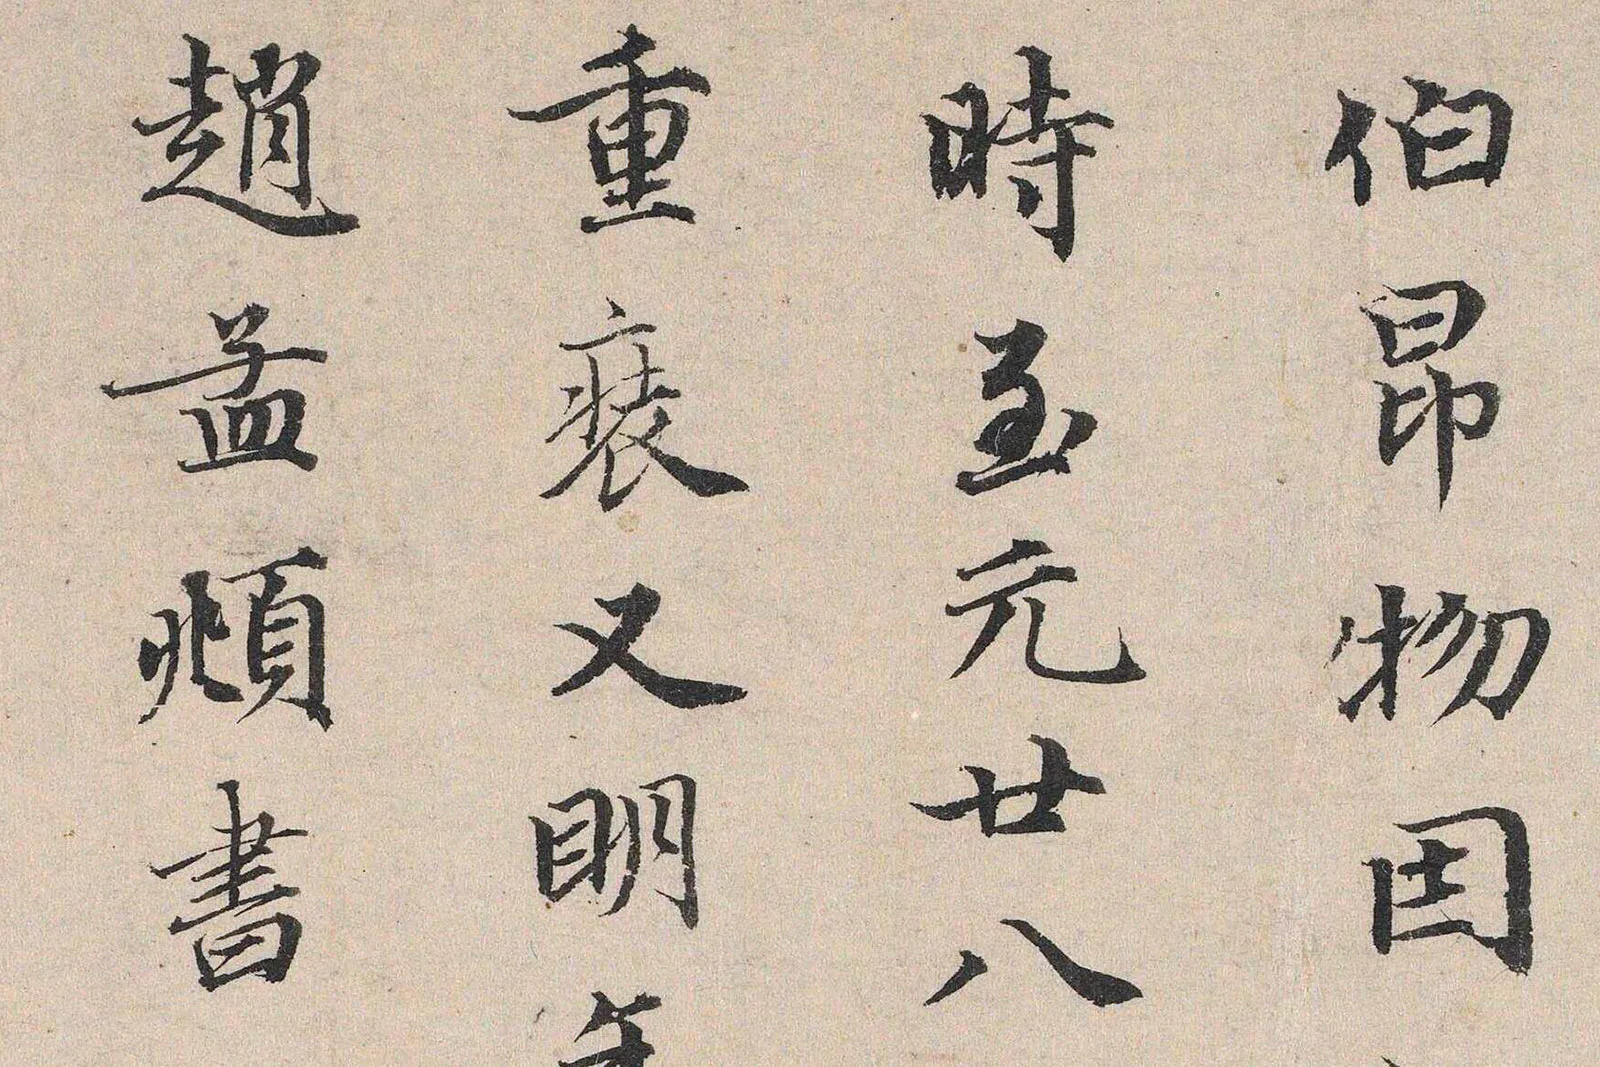 伯昂物因
時至元廿八
重裝又明年
趙孟頫書